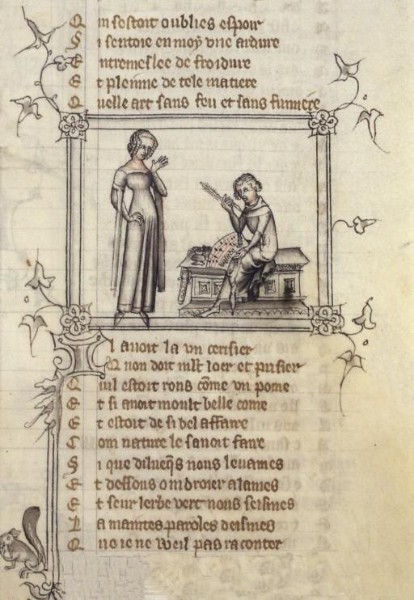 Qui sestoit oublies espoir
Si sentoie en moy vne ardure
Entremeslee de froidure
Et plenne de tele matiere
Quelle art sans feu et sans fumiere
Il auoit la vn cerisier
Quon doit mlt loer et prisier
Quil estoit rons cōme vn pome
Et si auoit moult belle come
Et estoit de si bel affaire
Com nature le sauoit faire
Si que dilueqs nous leuames
Et dessous ombroier alames
Et seur lerbe vert nous seismes
La maintes paroles deismes
Que ie ne weil pas raconter